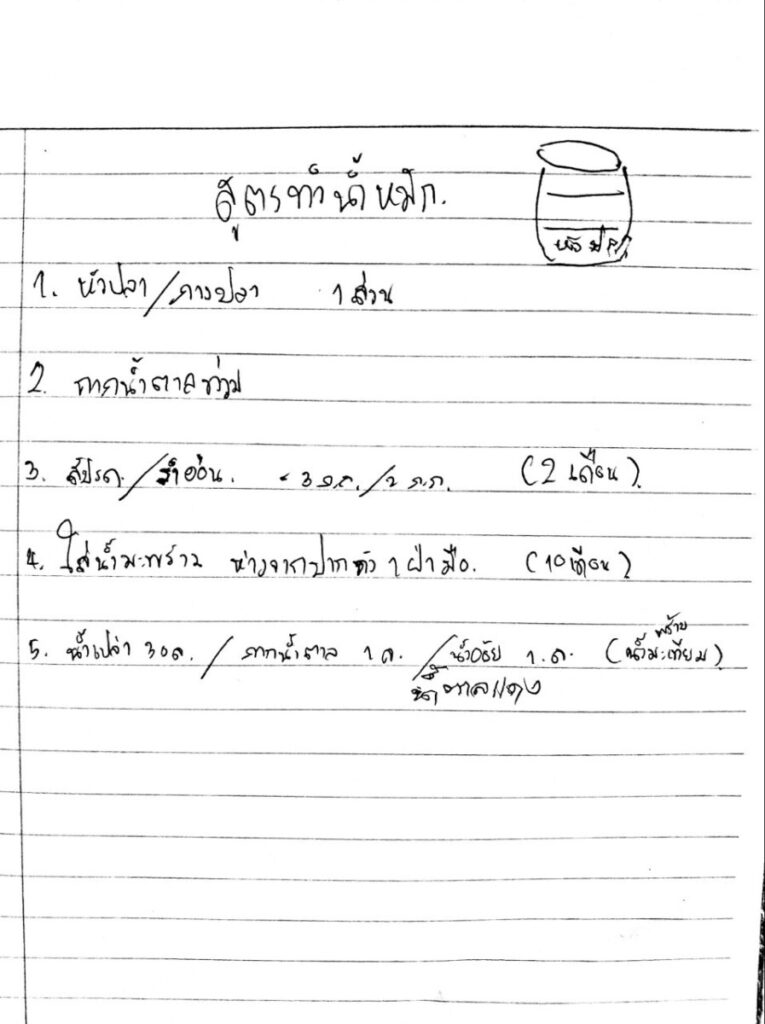 สูตรทำน้ำหมัก.
หัวปลา
1. หัวปลา/กางปลา 1 ส่วน
2. กากน้ำตาลท่วม
3. สัปรด./รำอ่อน. - 3 ด.ล./2 ก.ก. (2 เดือน)
4. ใส่น้ำมะพร้าว ห่างจากปากถัง 1 ฝ่ามือ. (10 เดือน)
5. น้ำเปล่า 30 ล. / กากน้ำตาล 1 ล. / น้ำอ้อย 1. ล. (น้ำมะเทียม)
พร้าว
น้ำตาลแดง